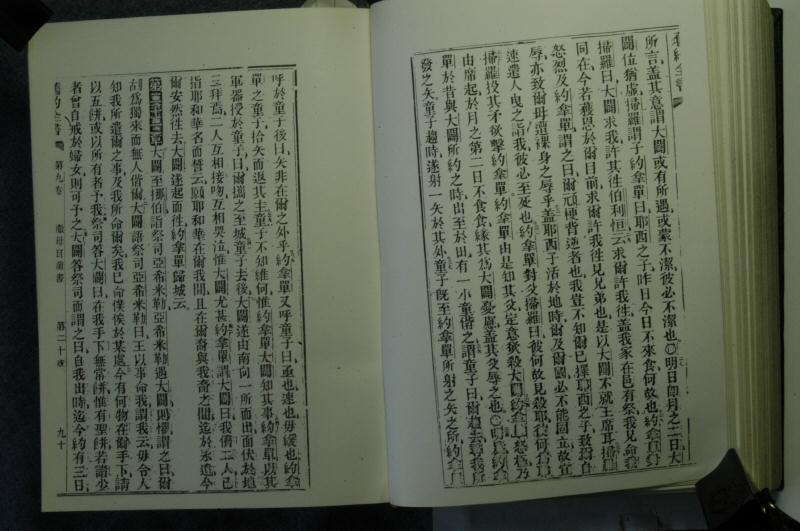 所言蓋其意謂大闢或有所遇或蒙不潔彼必不潔也〇明日卽月之二日大
闢位猶虛掃羅謂子約拿單曰耶西之子昨日今日不來食何故也約拿單對
掃羅曰大闢求我許其往伯利恒云求爾許我徃蓋我家在邑有祭我兄命我
同在今若獲恩於爾目前求爾許我徃見兄弟也是以大闢不就王席耳掃羅
怒烈及約拿單謂之曰爾頑梗背逆者也我豈不知爾已擇耶西之子致爾自
辱亦致爾母遭裸身之辱乎蓋耶西子活於地時爾及爾國必不能固立故宜
速遣人曳之詣我彼必至死也約拿單對父掃羅曰彼何故見殺耶
掃羅投其矛欲擊約拿單約拿單由是知其父定意欲殺大闢
由席起於月之第二日不食食緣其爲大闢憂慮蓋其父辱之也〇明
單於昔與大闢所約之時出至於田有一小童偕之謂童子曰爾趨去尋我所
發之矢童子趨時遂射一矢於其外童子旣至約拿單所射之矢之所約
呼於童子後曰矢非在爾之外乎約拿單又呼童子曰亟也速也毋緩也約拿
單之童子拾矢而返其主童子不知維何惟約拿單大闢知其事約拿單以其
軍器授於童子曰爾攜之至城童子去後大闢遂由南向一所而出面伏於地
三拜焉二人互相接吻互相哭泣惟大闢尤甚約拿單謂大闢曰我儕二人已
指耶和華名而誓云願耶和華在爾我間且在爾裔與我裔之間迄於永遠今
爾安然徃去大闢遂起而徃約拿單歸城云
第二十一章大闢至挪伯詣祭司亞希米勒亞希米勒遇大闢則懼謂之曰爾
胡爲獨來而無人偕爾大闢語祭司亞希米勒曰王以事命我謂我云毋令人
知我所遣爾之事及我所命爾矣我已命僕俟於某處今有何物在爾手下請
以五餅或以所有者予我祭司答大闢曰在我手下無常餅惟有聖餅若諸少
者曾自戒於婦女則可予之大闢答祭司而謂之曰自我出時迄今約有三日
舊約全書 第九卷 撒母耳前書 第二十章 九十